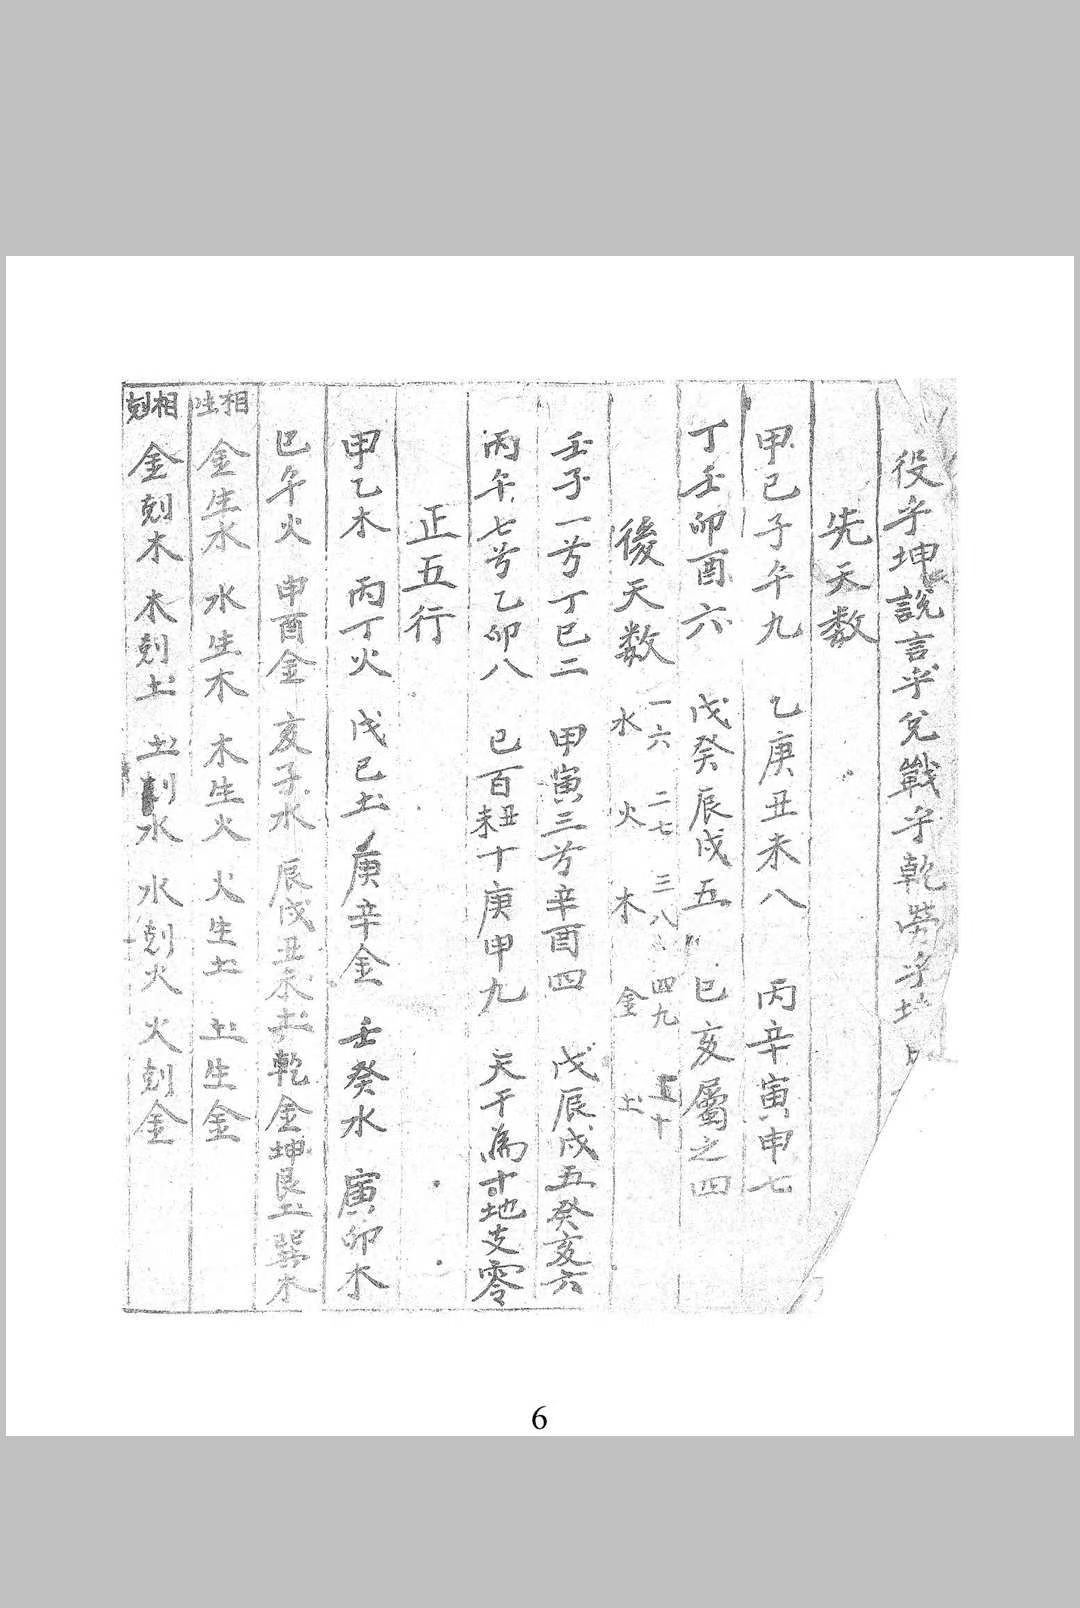 役乎坤說言乎兌戰乎乾勞乎坎
先天数
甲己子午九 乙庚丑未八 丙辛寅申七
丁壬卯酉六 戊癸辰戌五 巳亥屬之四
後天数 一六水 二七火 三八木 四九金 五十土
壬子一兮丁巳二 甲寅三兮辛酉四 戊辰戌五癸亥六
丙午七兮乙卯八 己百丑未十庚申九 天干為十地支零
正五行
甲乙木 丙丁火 戊己土 庚辛金 壬癸水 寅卯木
巳午火 申酉金 亥子水 辰戌丑未土 乾金坤艮土巽木
相生 金生水 水生木 木生火 火生土 土生金
相剋 金剋木 木剋土 土剋水 水剋火 火剋金
6